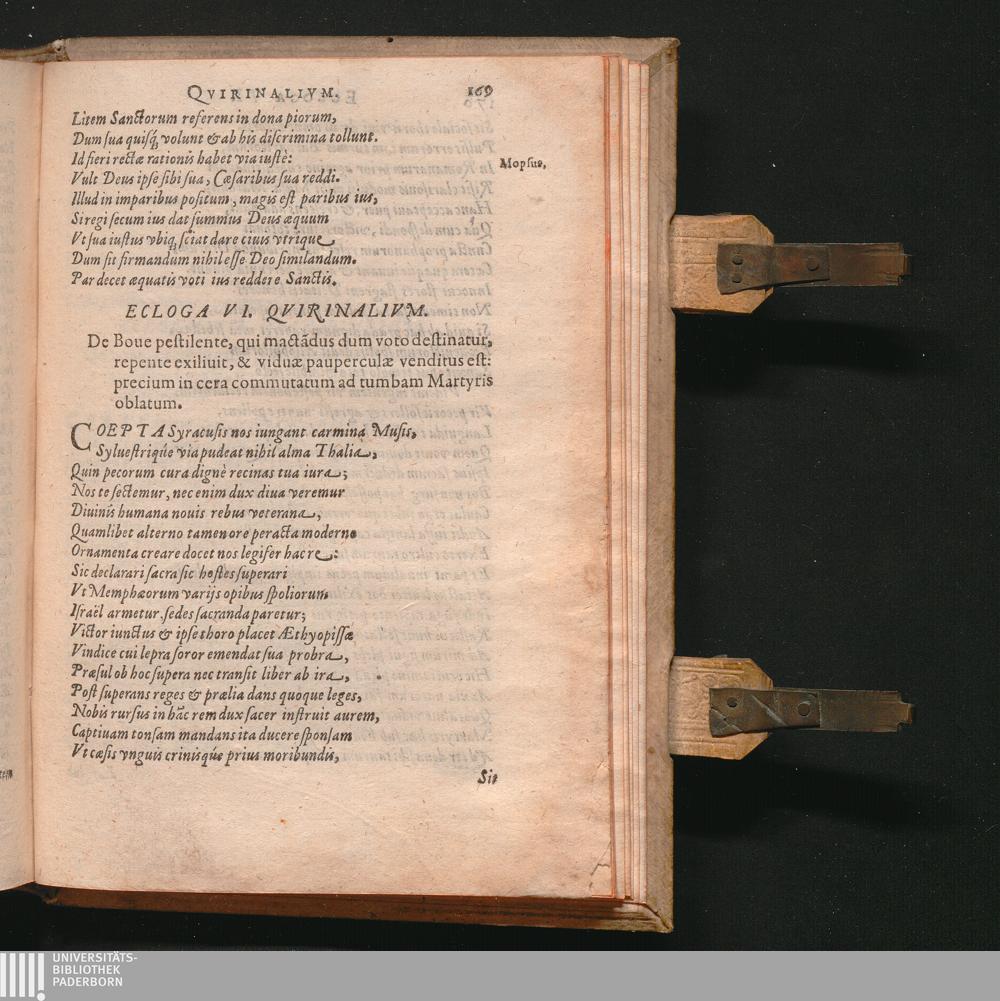 QVIRINALIVM. 169
Litem Sanctorum referens in dona piorum,
Dum sua quisq́; volunt & ab his discrimina tollunt.
Id fieri rectæ rationis habet via iustè: Mopsus,
Vult Deus ipse sibi sua, Cæsaribus sua reddi.
Illud in imparibus positum, magis est paribus ius,
Si regi secum ius dat summus Deus æquum
Vt sua iustus vbiq; sciat dare ciuis vtrique
Dum sit firmandum nihil esse Deo similandum.
Par decet æquatis voti ius reddere Sanctis.
ECLOGA VI. QVIRINALIVM.
De Boue pestilente, qui mactãdus dum voto destinatur,
repente exiliuit, & viduæ pauperculæ venditus est:
precium in cera commutatum ad tumbam Martyris
oblatum.
COEPTA Syracusis nos iungant carmina Musis,
Syluestriqúe via pudeat nihil alma Thalia,
Quin pecorum cura dignè recinas tua iura;
Nos te sectemur, nec enim dux diua veremur
Diuinis humana nouis rebus veterana,
Quamlibet alterno tamen ore peracta moderno
Ornamenta creare docet nos legifer hac re:
Sic declarari sacra sic hostes superari
Vt Memphæorum varijs opibus spoliorum
Israël armetur, sedes sacranda paretur;
Victor iunctus & ipse thoro placet Æthyopissæ
Vindice cui lepra soror emendat sua probra,
Præsul ob hoc supera nec transit liber ab ira,
Post superans reges & prælia dans quoque leges,
Nobis rursus in hãc rem dux sacer instruit aurem,
Captiuam tonsam mandans ita ducere sponsam
Vt cæsis vnguis crinisqúe prius moribundis,
Sit
UNIVERSITÄTS-
BIBLIOTHEK
PADERBORN